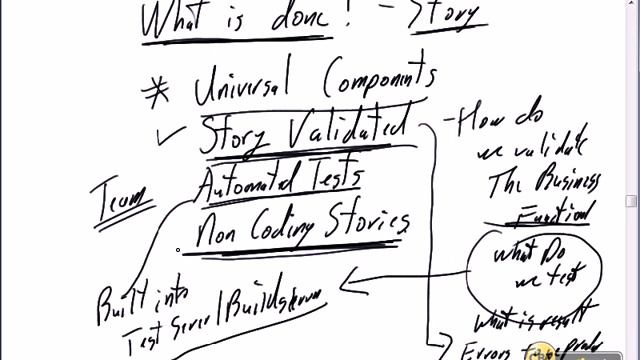 What is done! - Story
* Universal Components
✓ Story Validated
Automated Tests
Non Coding Stories
Team
Built into
Test Server / Build
- How do
we validate
The Business
Function
What Do
we test
What is result
Errors to